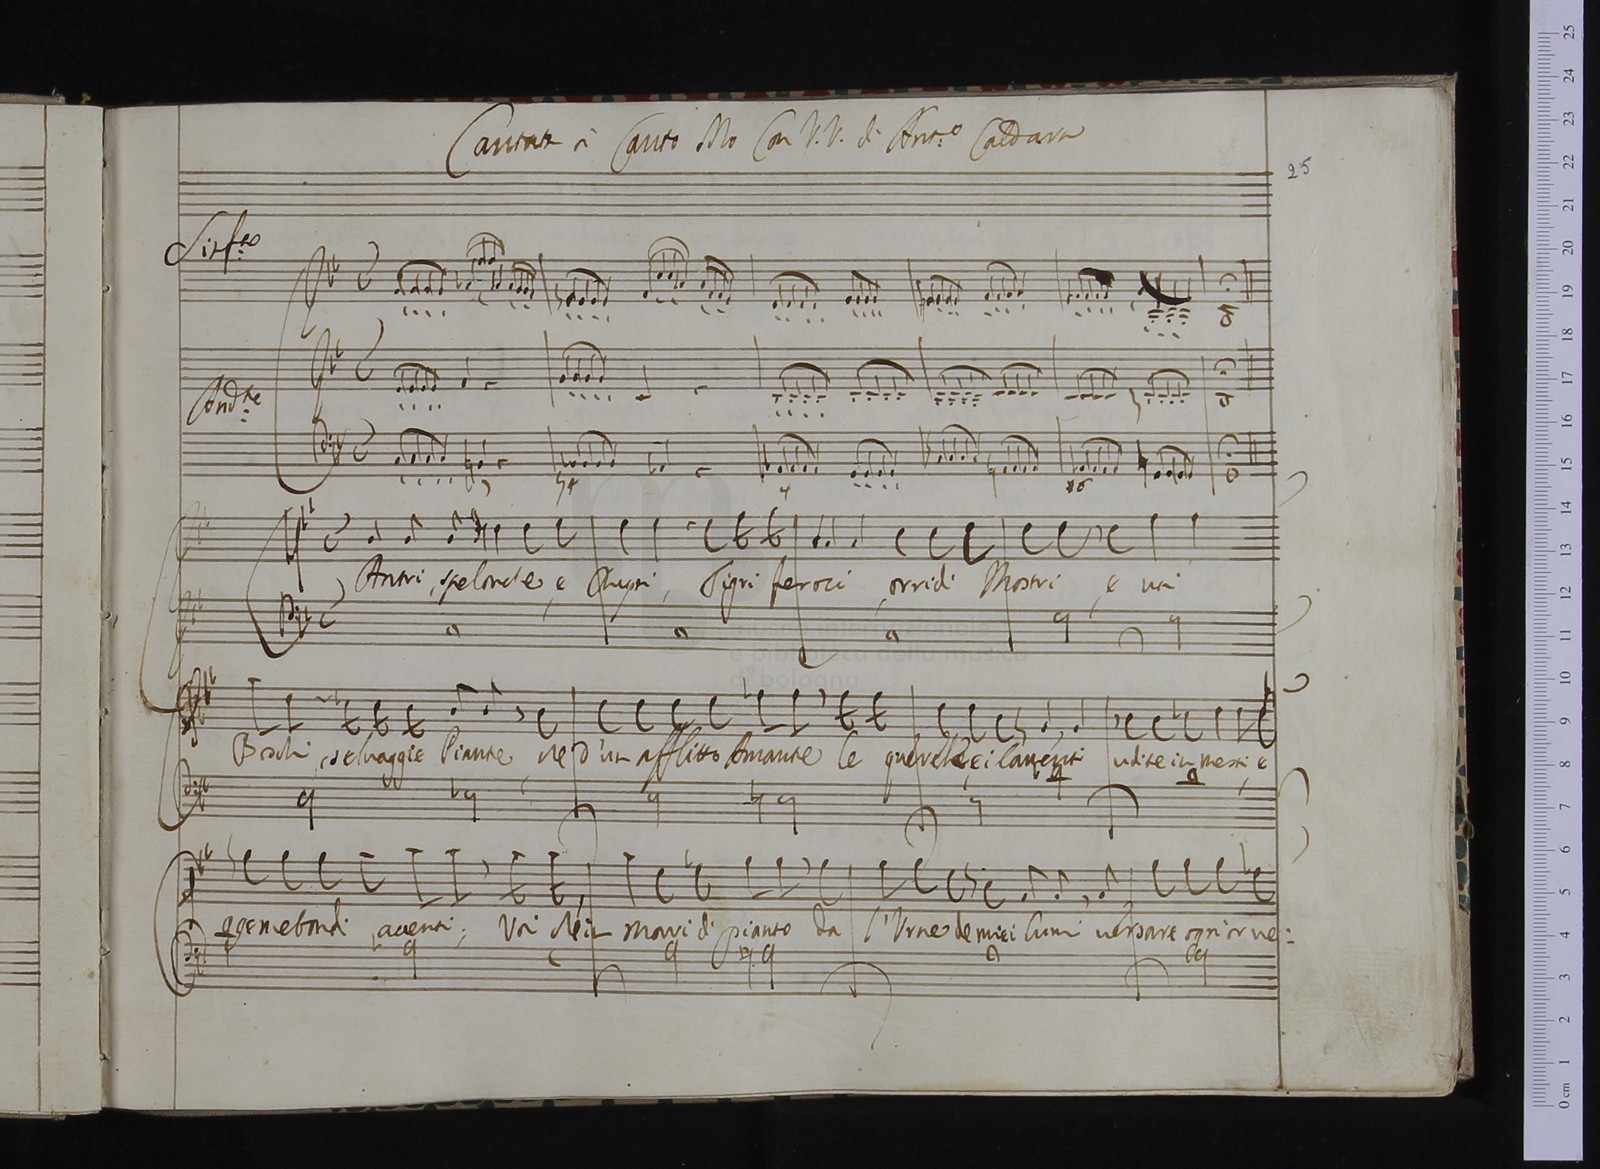 Cantata à Canto solo Con V.V. di Ant.o Caldara
25
Sinf.a
And.te
Antri, spelonche, e Dumi, Tigri feroci, orridi Mostri, e voi
Boschi, selvaggie Piante, se d'un afflitto Amante le querele, e i lamenti udite in mesti, e
gemebondi accenti; Voi se in mari di pianto da l'Urne de miei lumi versare ogn'or ve:
museo internazionale
e biblioteca della musica
di bologna
0 cm 1 2 3 4 5 6 7 8 9 10 11 12 13 14 15 16 17 18 19 20 21 22 23 24 25